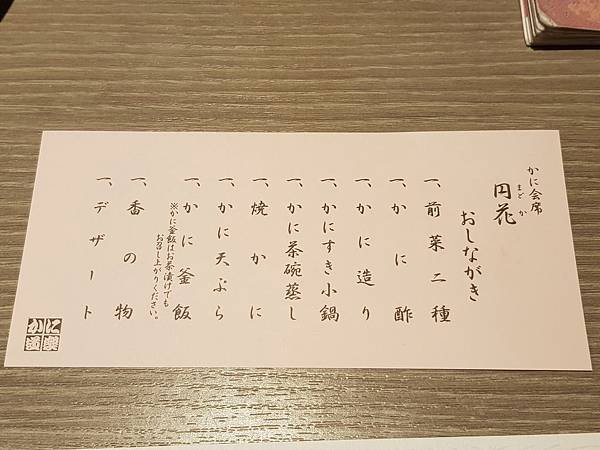 かに会席
円花
まどか
おしながき
一、前菜二種
一、かに酢
一、かに造り
一、かにすき小鍋
一、かに茶碗蒸し
一、焼かに
一、かに天ぷら
一、かに釜飯
※かに釜飯はお茶漬けでも
お召し上がりください。
一、番の物
一、デザート
かに